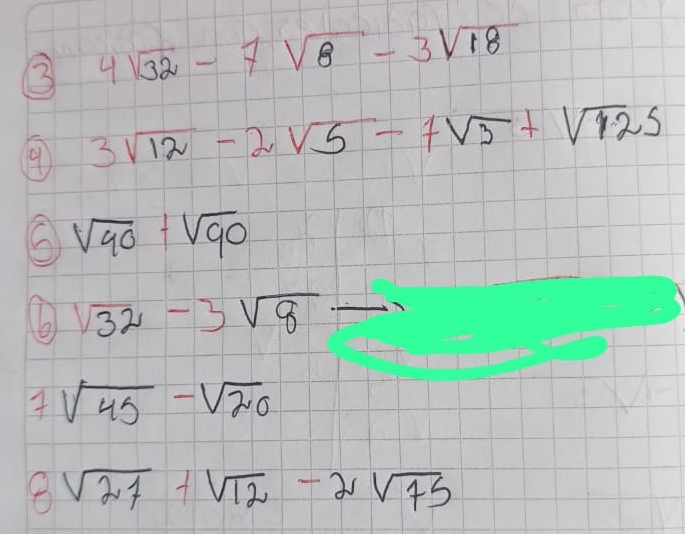 ③ 4√32 - 7√8 - 3√18
④ 3√12 - 2√5 - 7√3 + √125
⑤ √90 + √90
⑥ √32 - 3√8 →
7 √45 - √20
8 √27 + √12 - 2√75